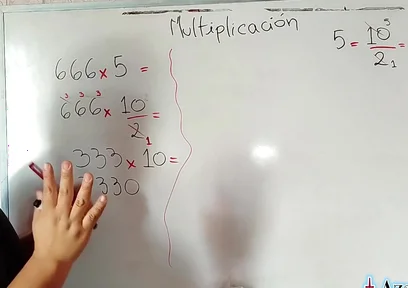 Multiplicación
666 x 5 =
3 3 3
666 x 10/2 1
333 x 10 =
3330
5 = 10/2 =
5
1